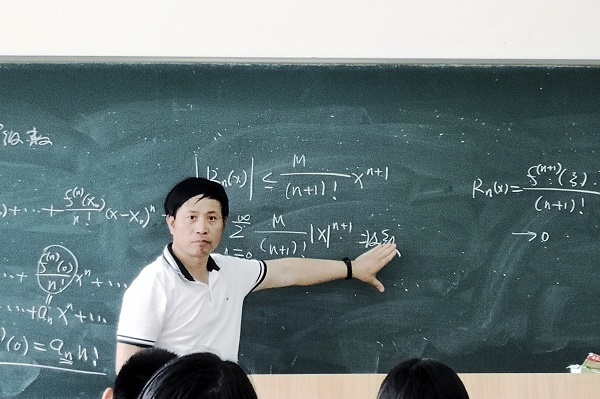 级数
) + ⋯ + f⁽ⁿ⁾(x₀)/n! (x-x₀)ⁿ
+ ⋯ f⁽ⁿ⁾(0)/n! xⁿ + ⋯
+ ⋯ + aₙ xⁿ + ⋯
(0) = aₙ n!
|Rₙ(x)| ≤ M/(n+1)! xⁿ⁺¹
∑ M/(n+1)! |x|ⁿ⁺¹ 收敛
Rₙ(x) = f⁽ⁿ⁺¹⁾(ξ)/(n+1)!
→ 0